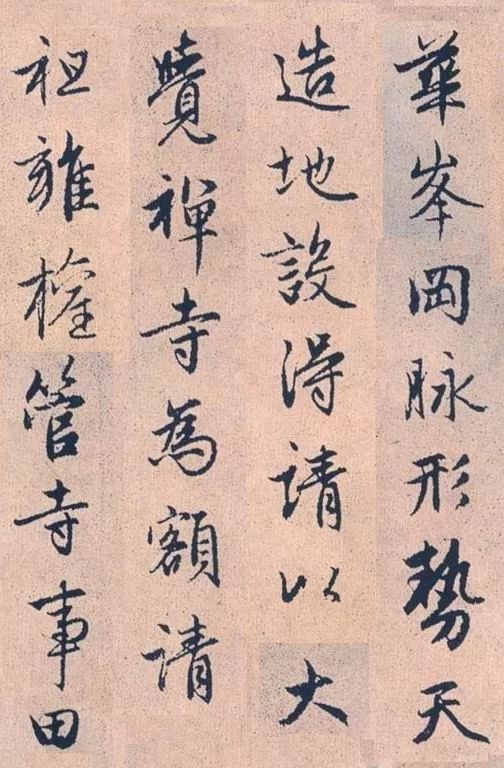 華峯岡脉形勢天
造地設得請以大
覺禅寺為額請
祖雍權管寺事田